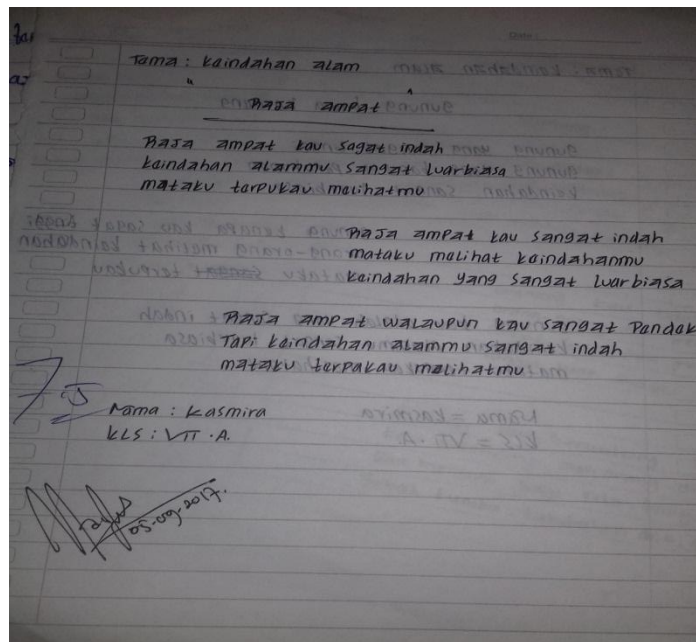 Date :
Tama : Kaindahan alam
" Raja ampat "
Raja ampat kau sagat indah
kaindahan alammu sangat luarbiasa
mataku tarpukau malihatmu
Raja ampat kau sangat indah
mataku malihat kaindahanmu
kaindahan yang sangat luarbiasa
Raja ampat walaupun kau sangat Pandak
Tapi kaindahan alammu sangat indah
mataku tarpakau malihatmu
Nama : Kasmira
KLS : VII . A.
05-09-2017.